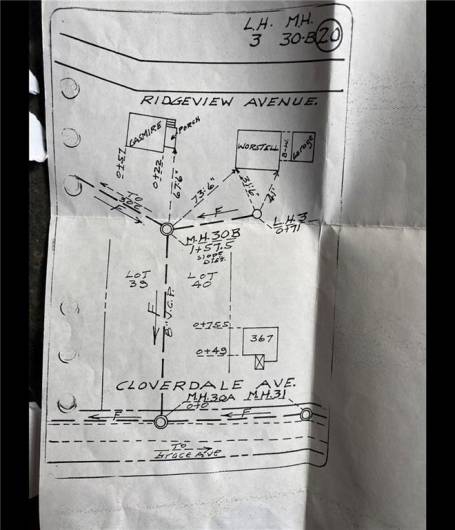 L.H. M.H.
3 30-B 20
RIDGEVIEW AVENUE.
CASMIRE
PORCH
WORSTELL
B-W.
Garage
0+51
0+22
67'6"
73'-6"
31'6"
41'
F
F
L.H.3
0+71
M.H.30B
1+57.5
Slope
Dist.
LOT
39
LOT
40
F
8" V.C.P.
0+75.5
367
0+49
CLOVERDALE AVE.
M.H.30A M.H.31
0+0
F
F
To
Grace Ave